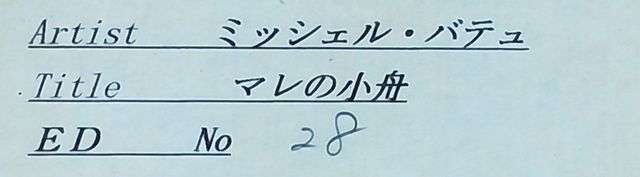 Artist ミッシェル・バテュ
Title マレの小舟
ED No 28